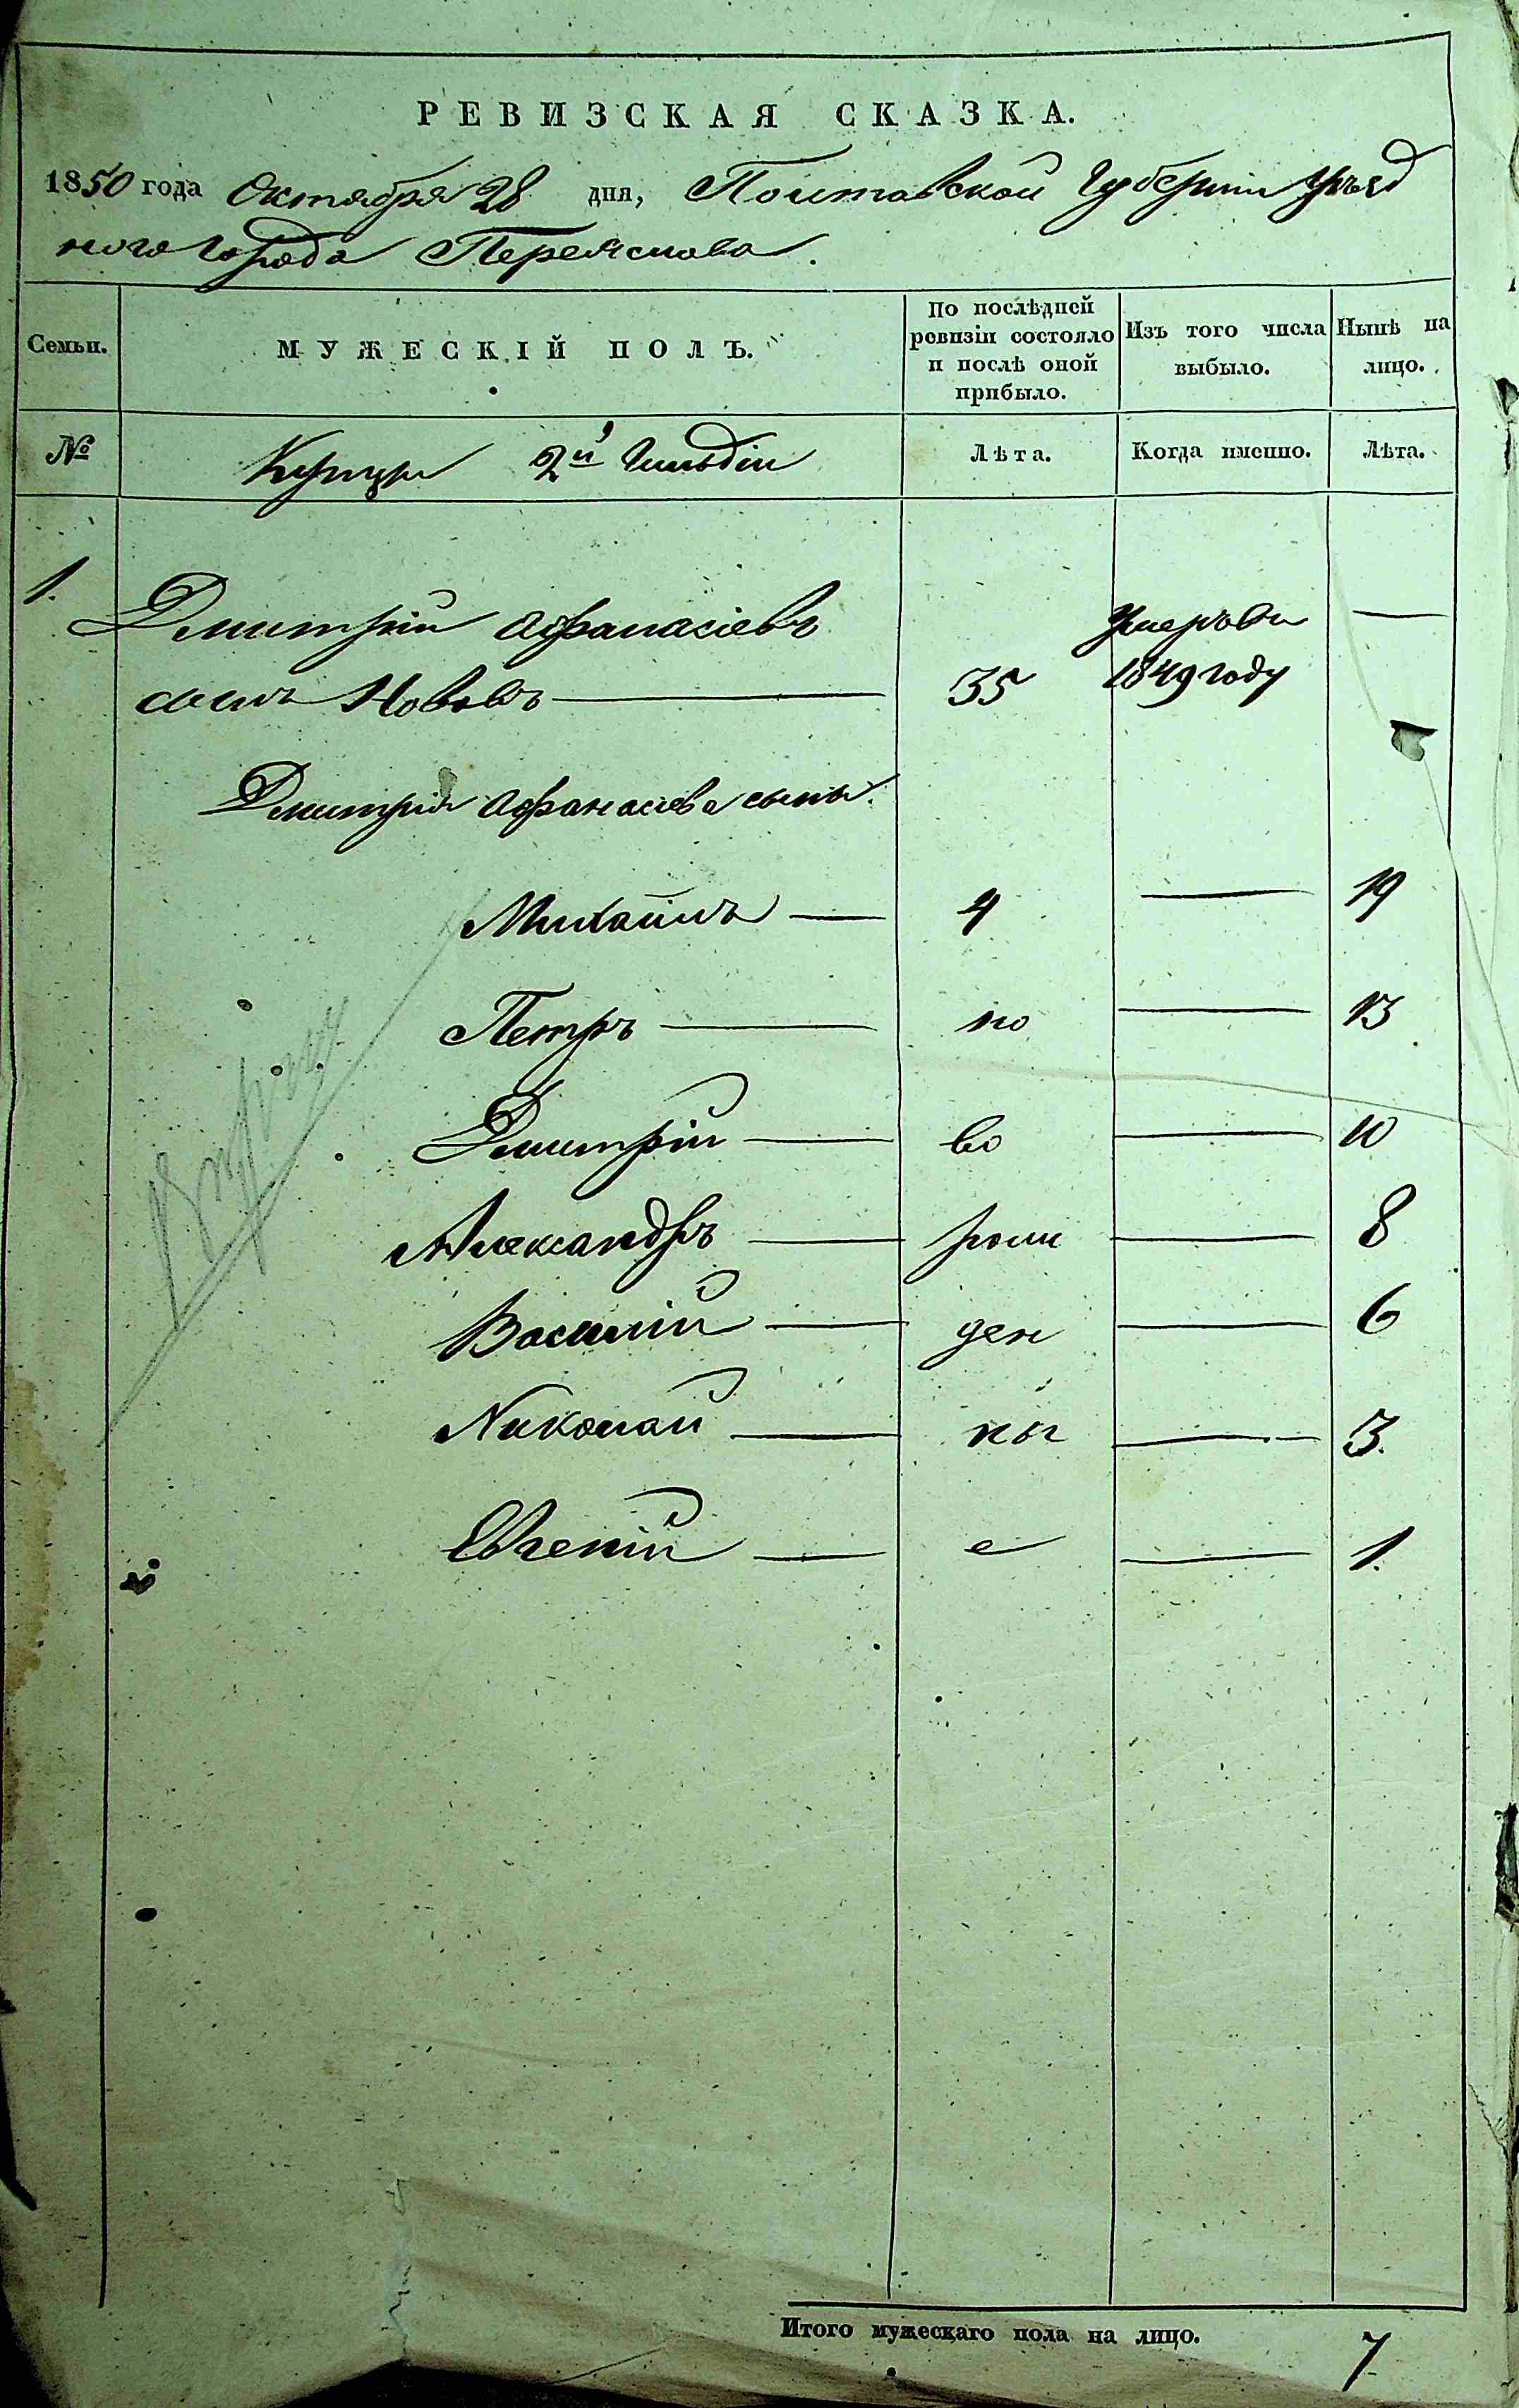 РЕВИЗСКАЯ СКАЗКА.
1850 года Октября 28 дня, Полтавской Губерніи Уѣзд
ного Города Переяслава.
Семьи. МУЖЕСКІЙ ПОЛЪ. По послѣдней ревизіи состояло и послѣ оной прибыло. Изъ того числа выбыло. Нынѣ на лицо.
№ Купцы 2й Гильдіи Лѣта. Когда именно. Лѣта.
1. Дмитрій Афанасіевъ Умеръ въ —
сынъ Нововъ — 35 1849 году
Дмитрія Афанасіева сыны:
Михаилъ — 4 — 19
Петръ — по — 13
Дмитрій — во — 10
Александръ — рож — 8
Василій — ден — 6
Николай — ны — 3.
Евгеній — е — 1.
Итого мужескаго пола на лицо. 7